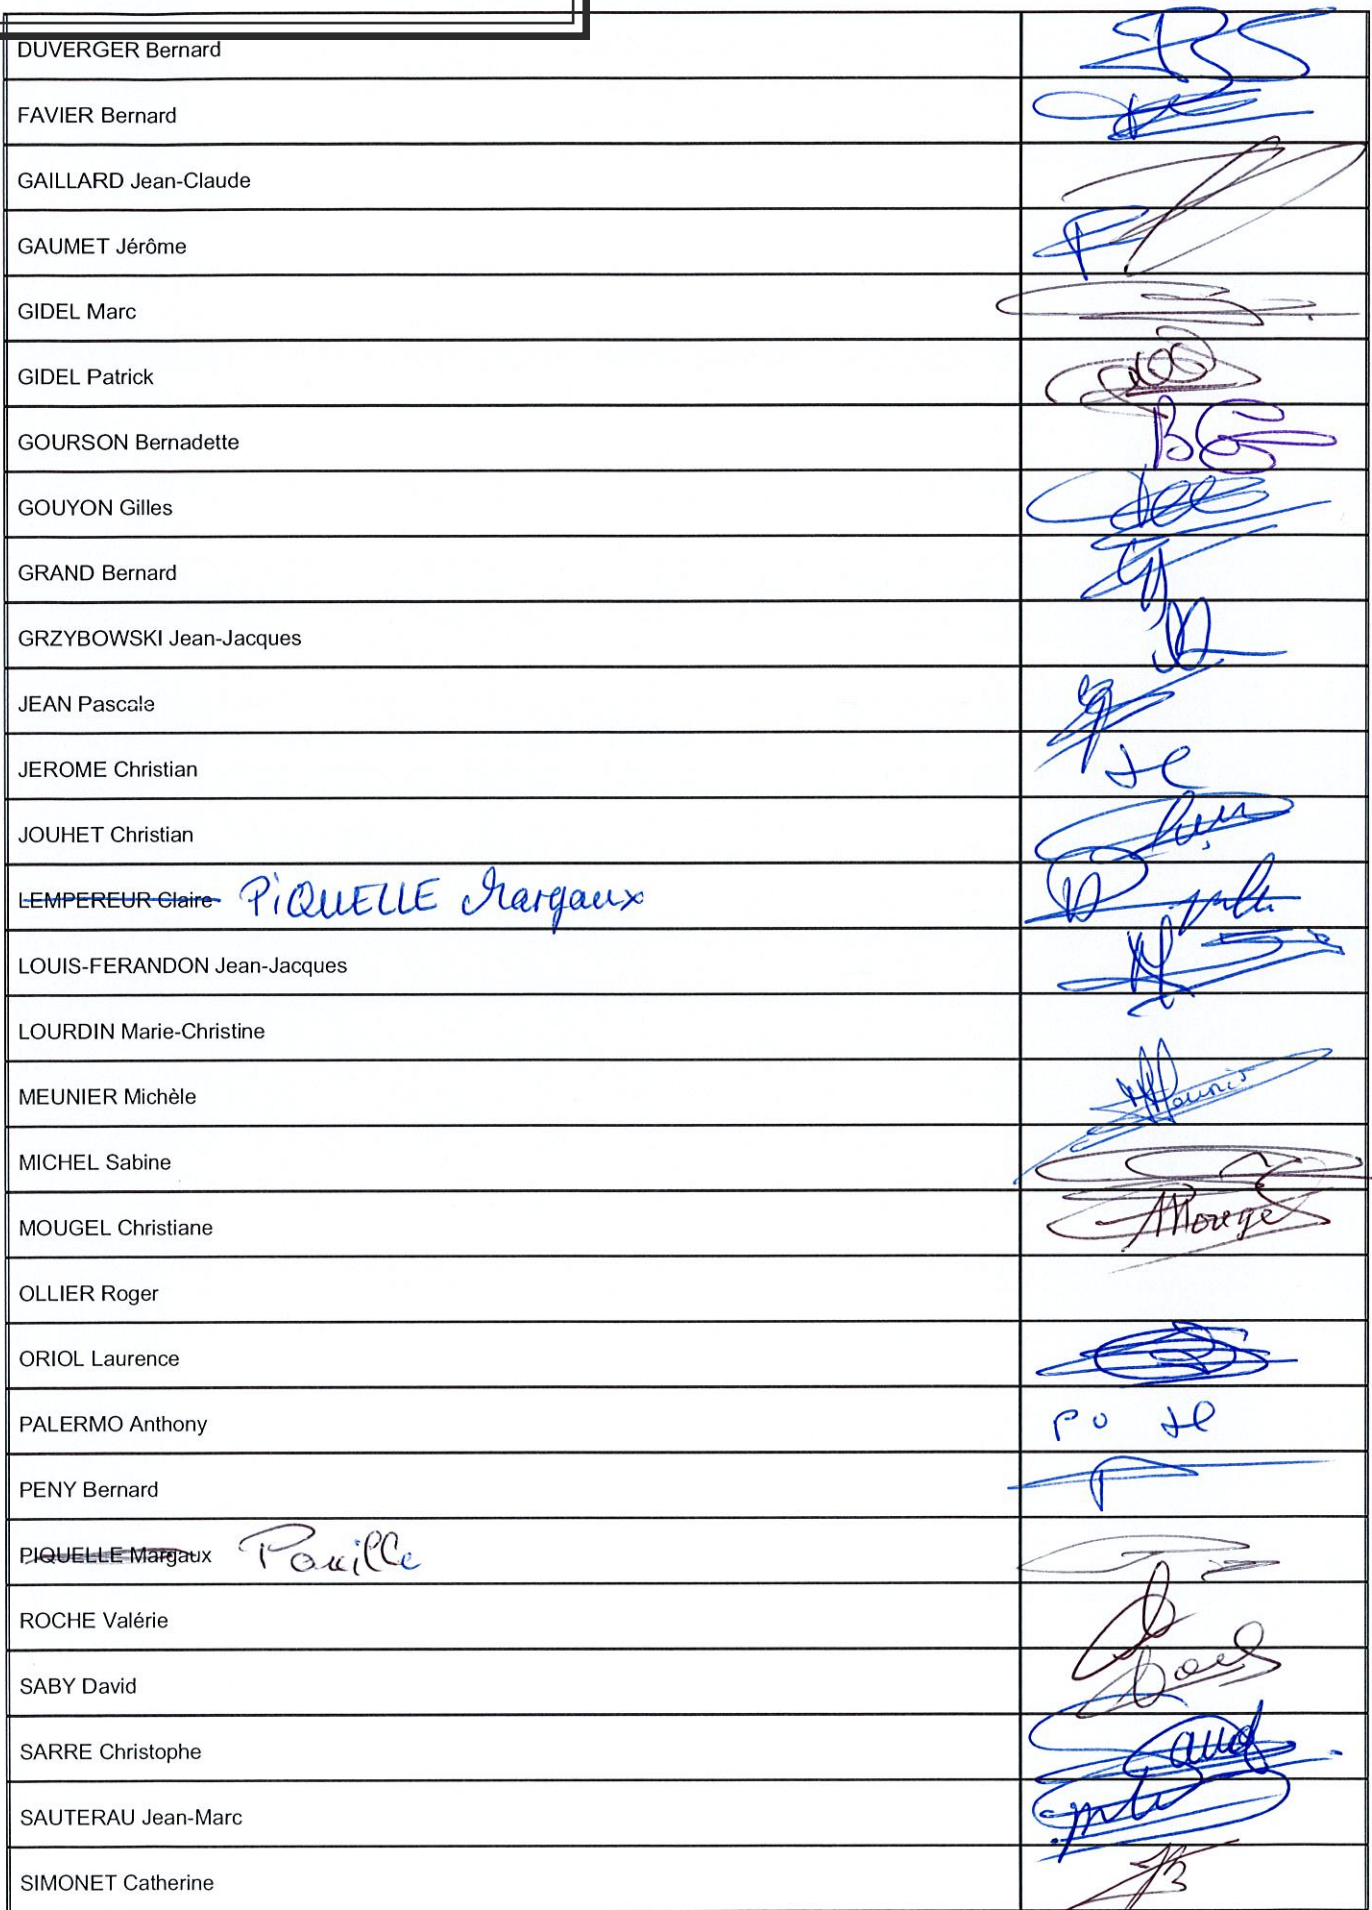 DUVERGER Bernard
FAVIER Bernard
GAILLARD Jean-Claude
GAUMET Jérôme
GIDEL Marc
GIDEL Patrick
GOURSON Bernadette
GOUYON Gilles
GRAND Bernard
GRZYBOWSKI Jean-Jacques
JEAN Pascale
JEROME Christian
JOUHET Christian
LEMPEREUR Claire PiQUELLE Margaux
LOUIS-FERANDON Jean-Jacques
LOURDIN Marie-Christine
MEUNIER Michèle
MICHEL Sabine
MOUGEL Christiane
OLLIER Roger
ORIOL Laurence
PALERMO Anthony
PENY Bernard
PIQUELLE Margaux
ROCHE Valérie
SABY David
SARRE Christophe
SAUTERAU Jean-Marc
SIMONET Catherine